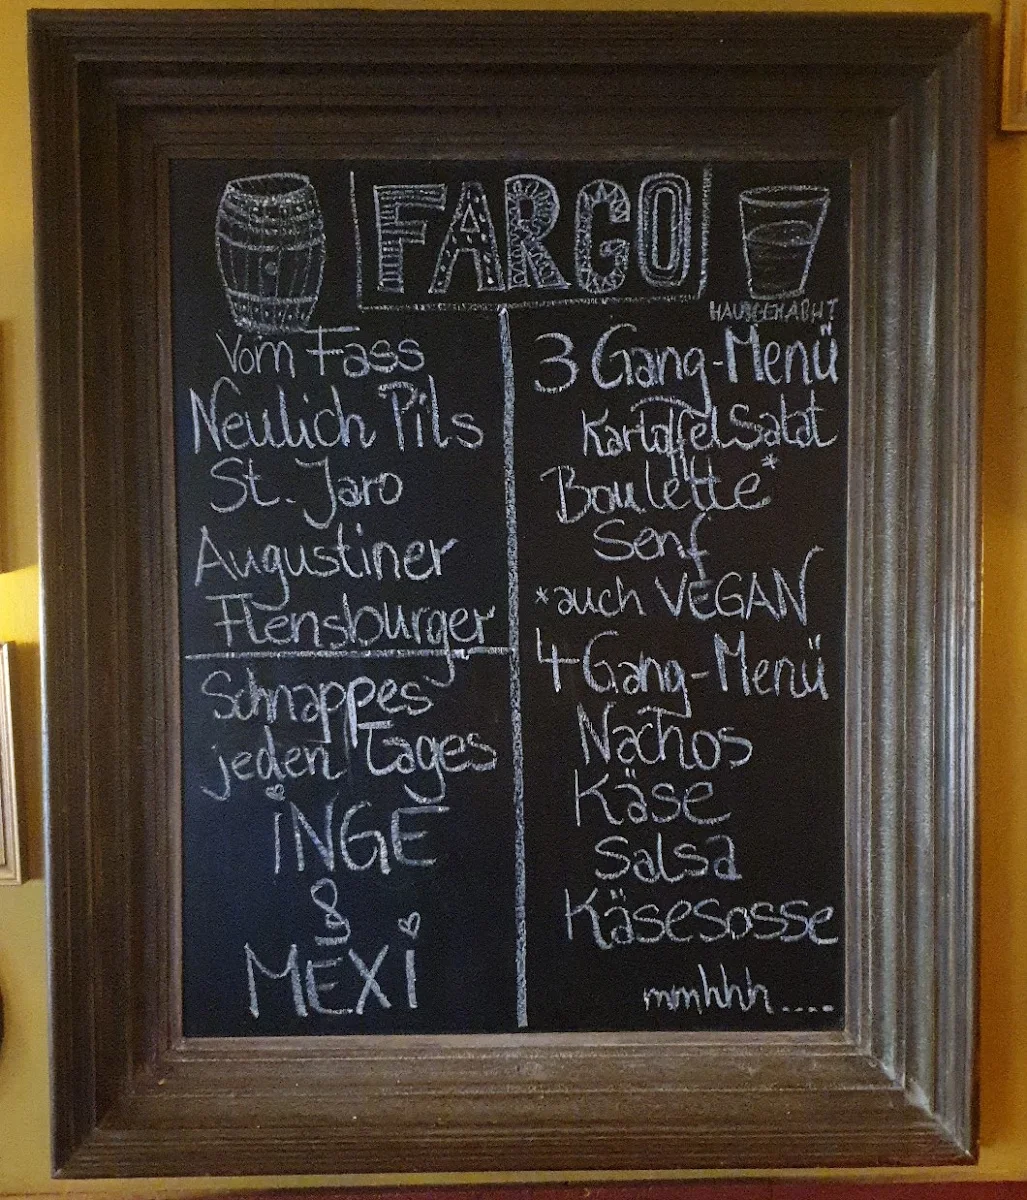 FARGO
Vom Fass
Neulich Pils
St. Jaro
Augustiner
Flensburger
Schnappes
jeden Tages
iNGE
&
MEXi
HAUSGEMACHT
3 Gang-Menü
Kartoffel Salat
Boulette*
Senf
*auch VEGAN
4-Gang-Menü
Nachos
Käse
Salsa
Käsesosse
mmhhh....